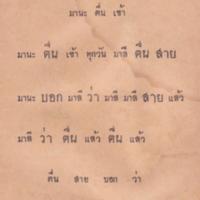 มานะ ตื่น เช้า
มานะ ตื่น เช้า ทุกวัน มาลี ตื่น สาย
มานะ บอก มาลี ว่า มาลี มาลี สาย แล้ว
มาลี ว่า ตื่น แล้ว ตื่น แล้ว
ตื่น สาย บอก ว่า